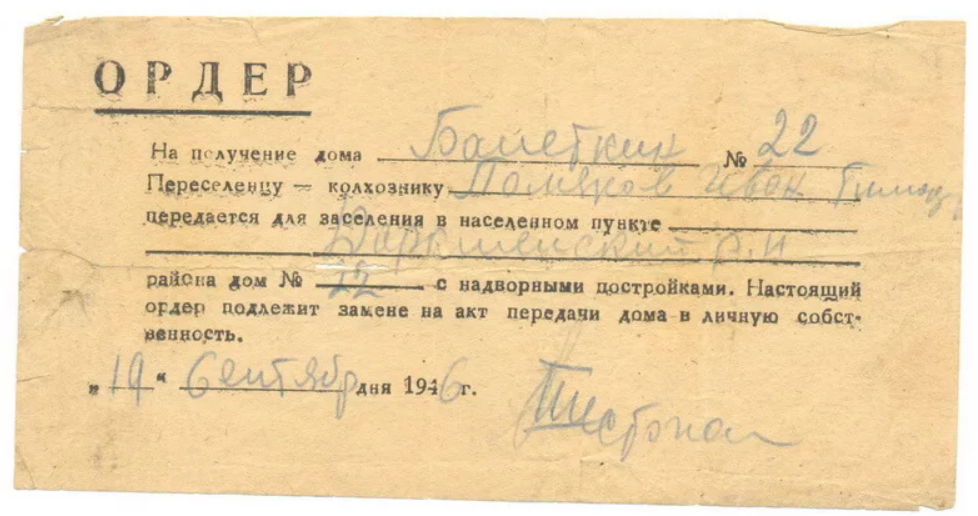 ОРДЕР
На получение дома № 22
Переселенцу — колхознику Поляков Иван Тимоф
передается для заселения в населенном пункте
р-н
района дом № 22 с надворными постройками. Настоящий
ордер подлежит замене на акт передачи дома в личную собст-
венность.
„19“ Сентябр дня 1946 г.